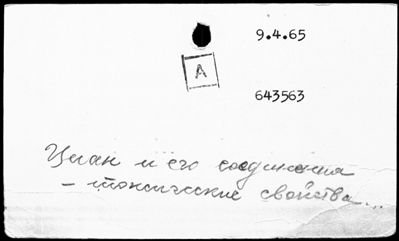 9.4.65
A
643563
Циан и его соединения
- токсические свойства...